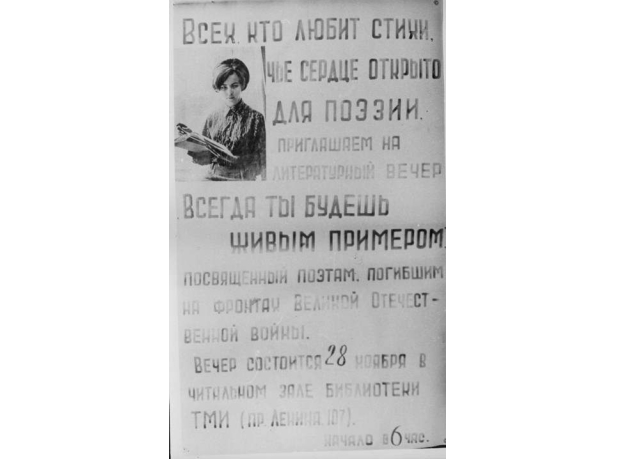 Всех, кто любит стихи,
чье сердце открыто
для поэзии,
приглашаем на
литературный вечер
Всегда ты будешь
живым примером,
посвященный поэтам, погибшим
на фронтах Великой Отечест-
венной войны.
Вечер состоится 28 ноября в
читальном зале библиотеки
ТМИ (пр. Ленина, 107).
Начало в 6 час.